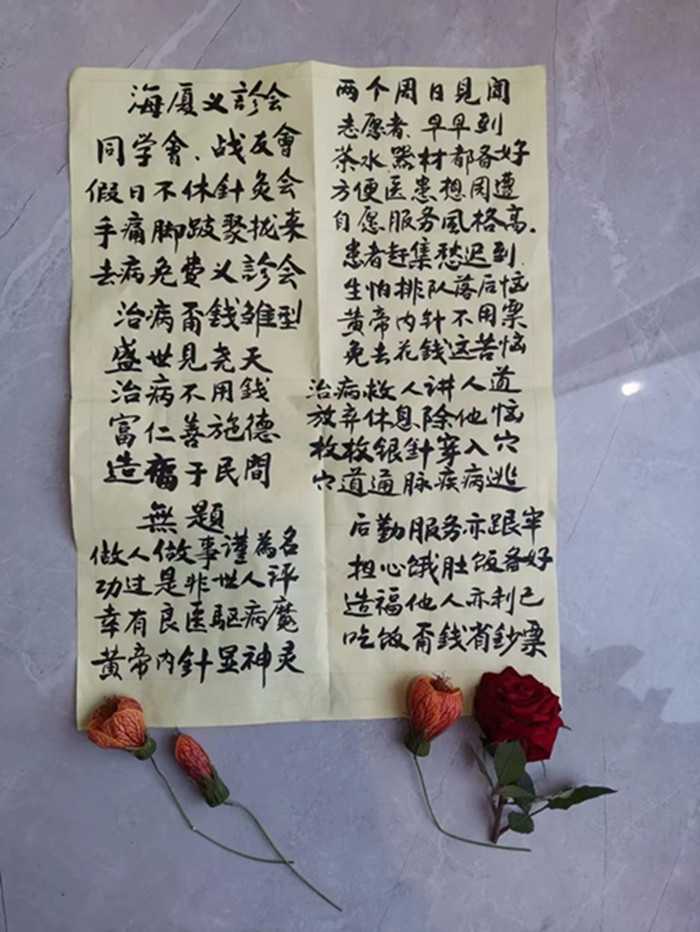 海厦义診会
同学會、战友會
假日不休針灸会
手痛脚跛聚拢来
去病免費义診会
治病甭錢雏型
盛世見尧天
治病不用錢
富仁善施德
造福于民間
無題
做人做事谨為名
功过是非世人评
幸有良医驱病魔
黄帝内針显神灵
两个周日見聞
志愿者、早早到
茶水、器材都备好
方便医患想周遭
自愿服务風格高。
患者赶集愁迟到.
生怕排队落后恼
黄帝内针不用票
免去花錢这苦恼
治病救人讲人道
放弃休息除他恼
枚枚银針穿入穴
穴道通脉疾病逃
后勤服务亦跟牢
担心饿肚饭备好
造福他人亦利己
吃饭甭錢省鈔票